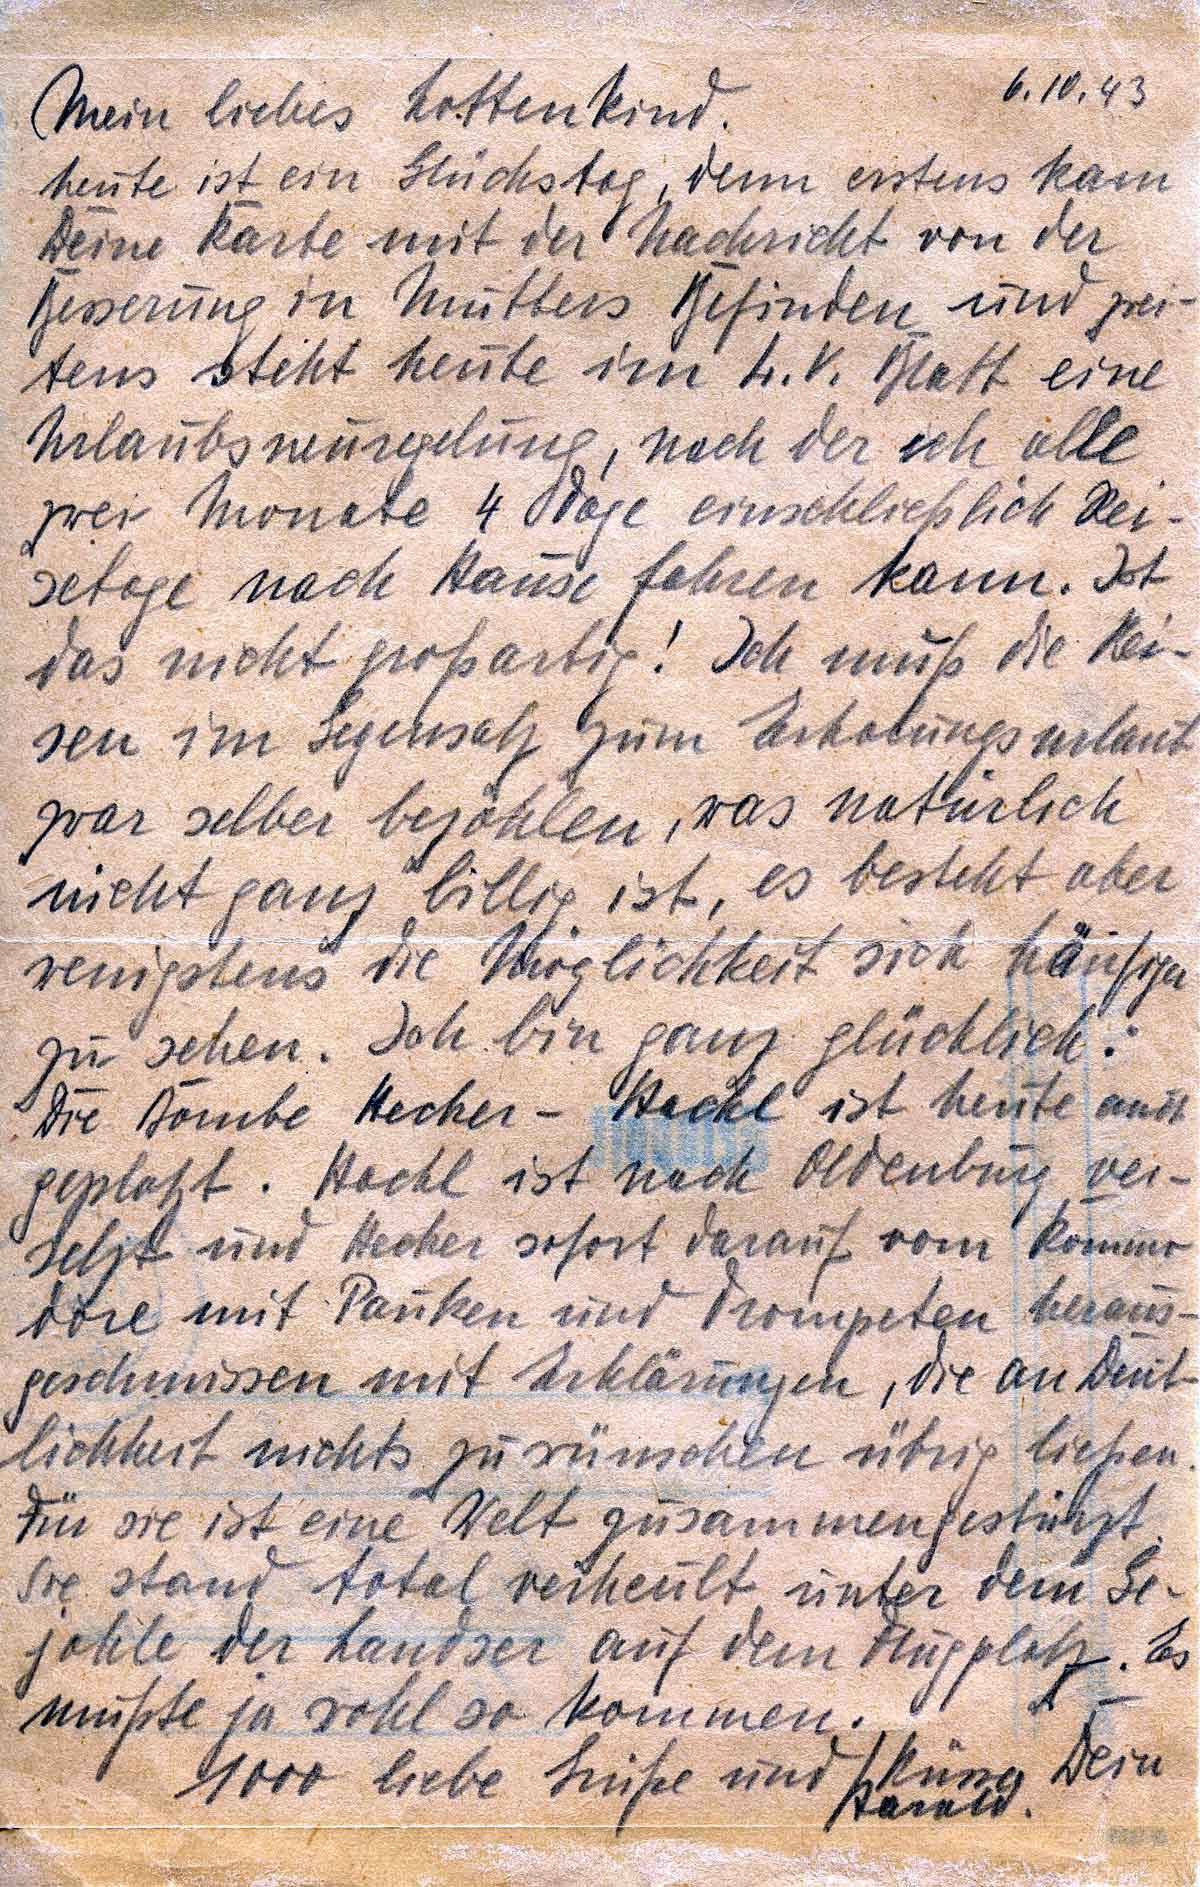 6.10.43
Mein liebes Lottenkind.
heute ist ein Glückstag, denn erstens kam
Deine Karte mit der Nachricht von der
Besserung in Mutters Befinden und zwei-
tens steht heute im L.V. Blatt eine
Urlaubsneuregelung, nach der ich alle
zwei Monate 4 Tage einschließlich Rei-
setage nach Hause fahren kann. Ist
das nicht großartig! Ich muß die Rei-
sen im Gegensatz zum Erholungsurlaub
zwar selber bezahlen, was natürlich
nicht ganz billig ist, es besteht aber
wenigstens die Möglichkeit sich häufiger
zu sehen. Ich bin ganz glücklich.
Die Bombe Hecker - Hackl ist heute
geplatzt. Hackl ist nach Oldenburg ver-
setzt und Hecker sofort darauf vom Kommo
dore mit Pauken und Trompeten heraus-
geschmissen mit Erklärungen, die an Deut-
lichkeit nichts zu wünschen übrig ließen.
Für sie ist eine Welt zusammengestürzt.
Sie stand total verheult unter dem Ge-
johle der Landser auf dem Flugplatz. Es
mußte ja wohl so kommen.
1000 liebe Grüße und Küsse Dein
Harald.